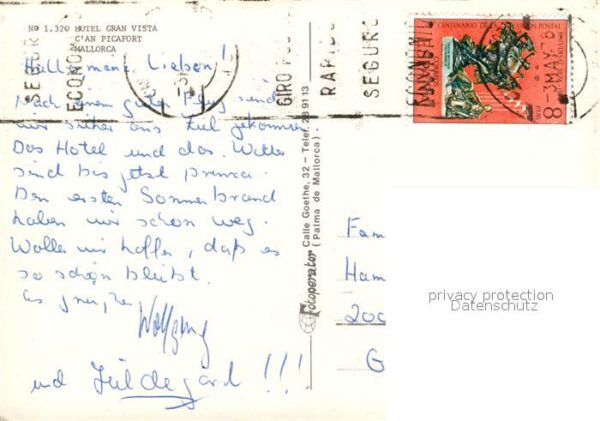 No 1.320 HOTEL GRAN VISTA
C'AN PICAFORT
MALLORCA
Hallo meine Lieben!
Nach einem guten Flug sind
wir sicher ans Ziel gekommen.
Das Hotel und das Wetter
sind bis jetzt prima.
Den ersten Sonnenbrand
haben wir schon weg.
Wollen wir hoffen, daß es
so schön bleibt.
Es grüßen
Wolfgang
und Hildegard!!!
SEGURO
ECONOM
GIRO POS
RAPIDO
SEGURO
ECONOMI
CENTENARIO DE LA UNION POSTAL
8
-3 MAY 78
Fotoperator Calle Goethe, 32 – Telef. 28 91 13
(Palma de Mallorca)
Fam
Ham
200
G
privacy protection
Datenschutz